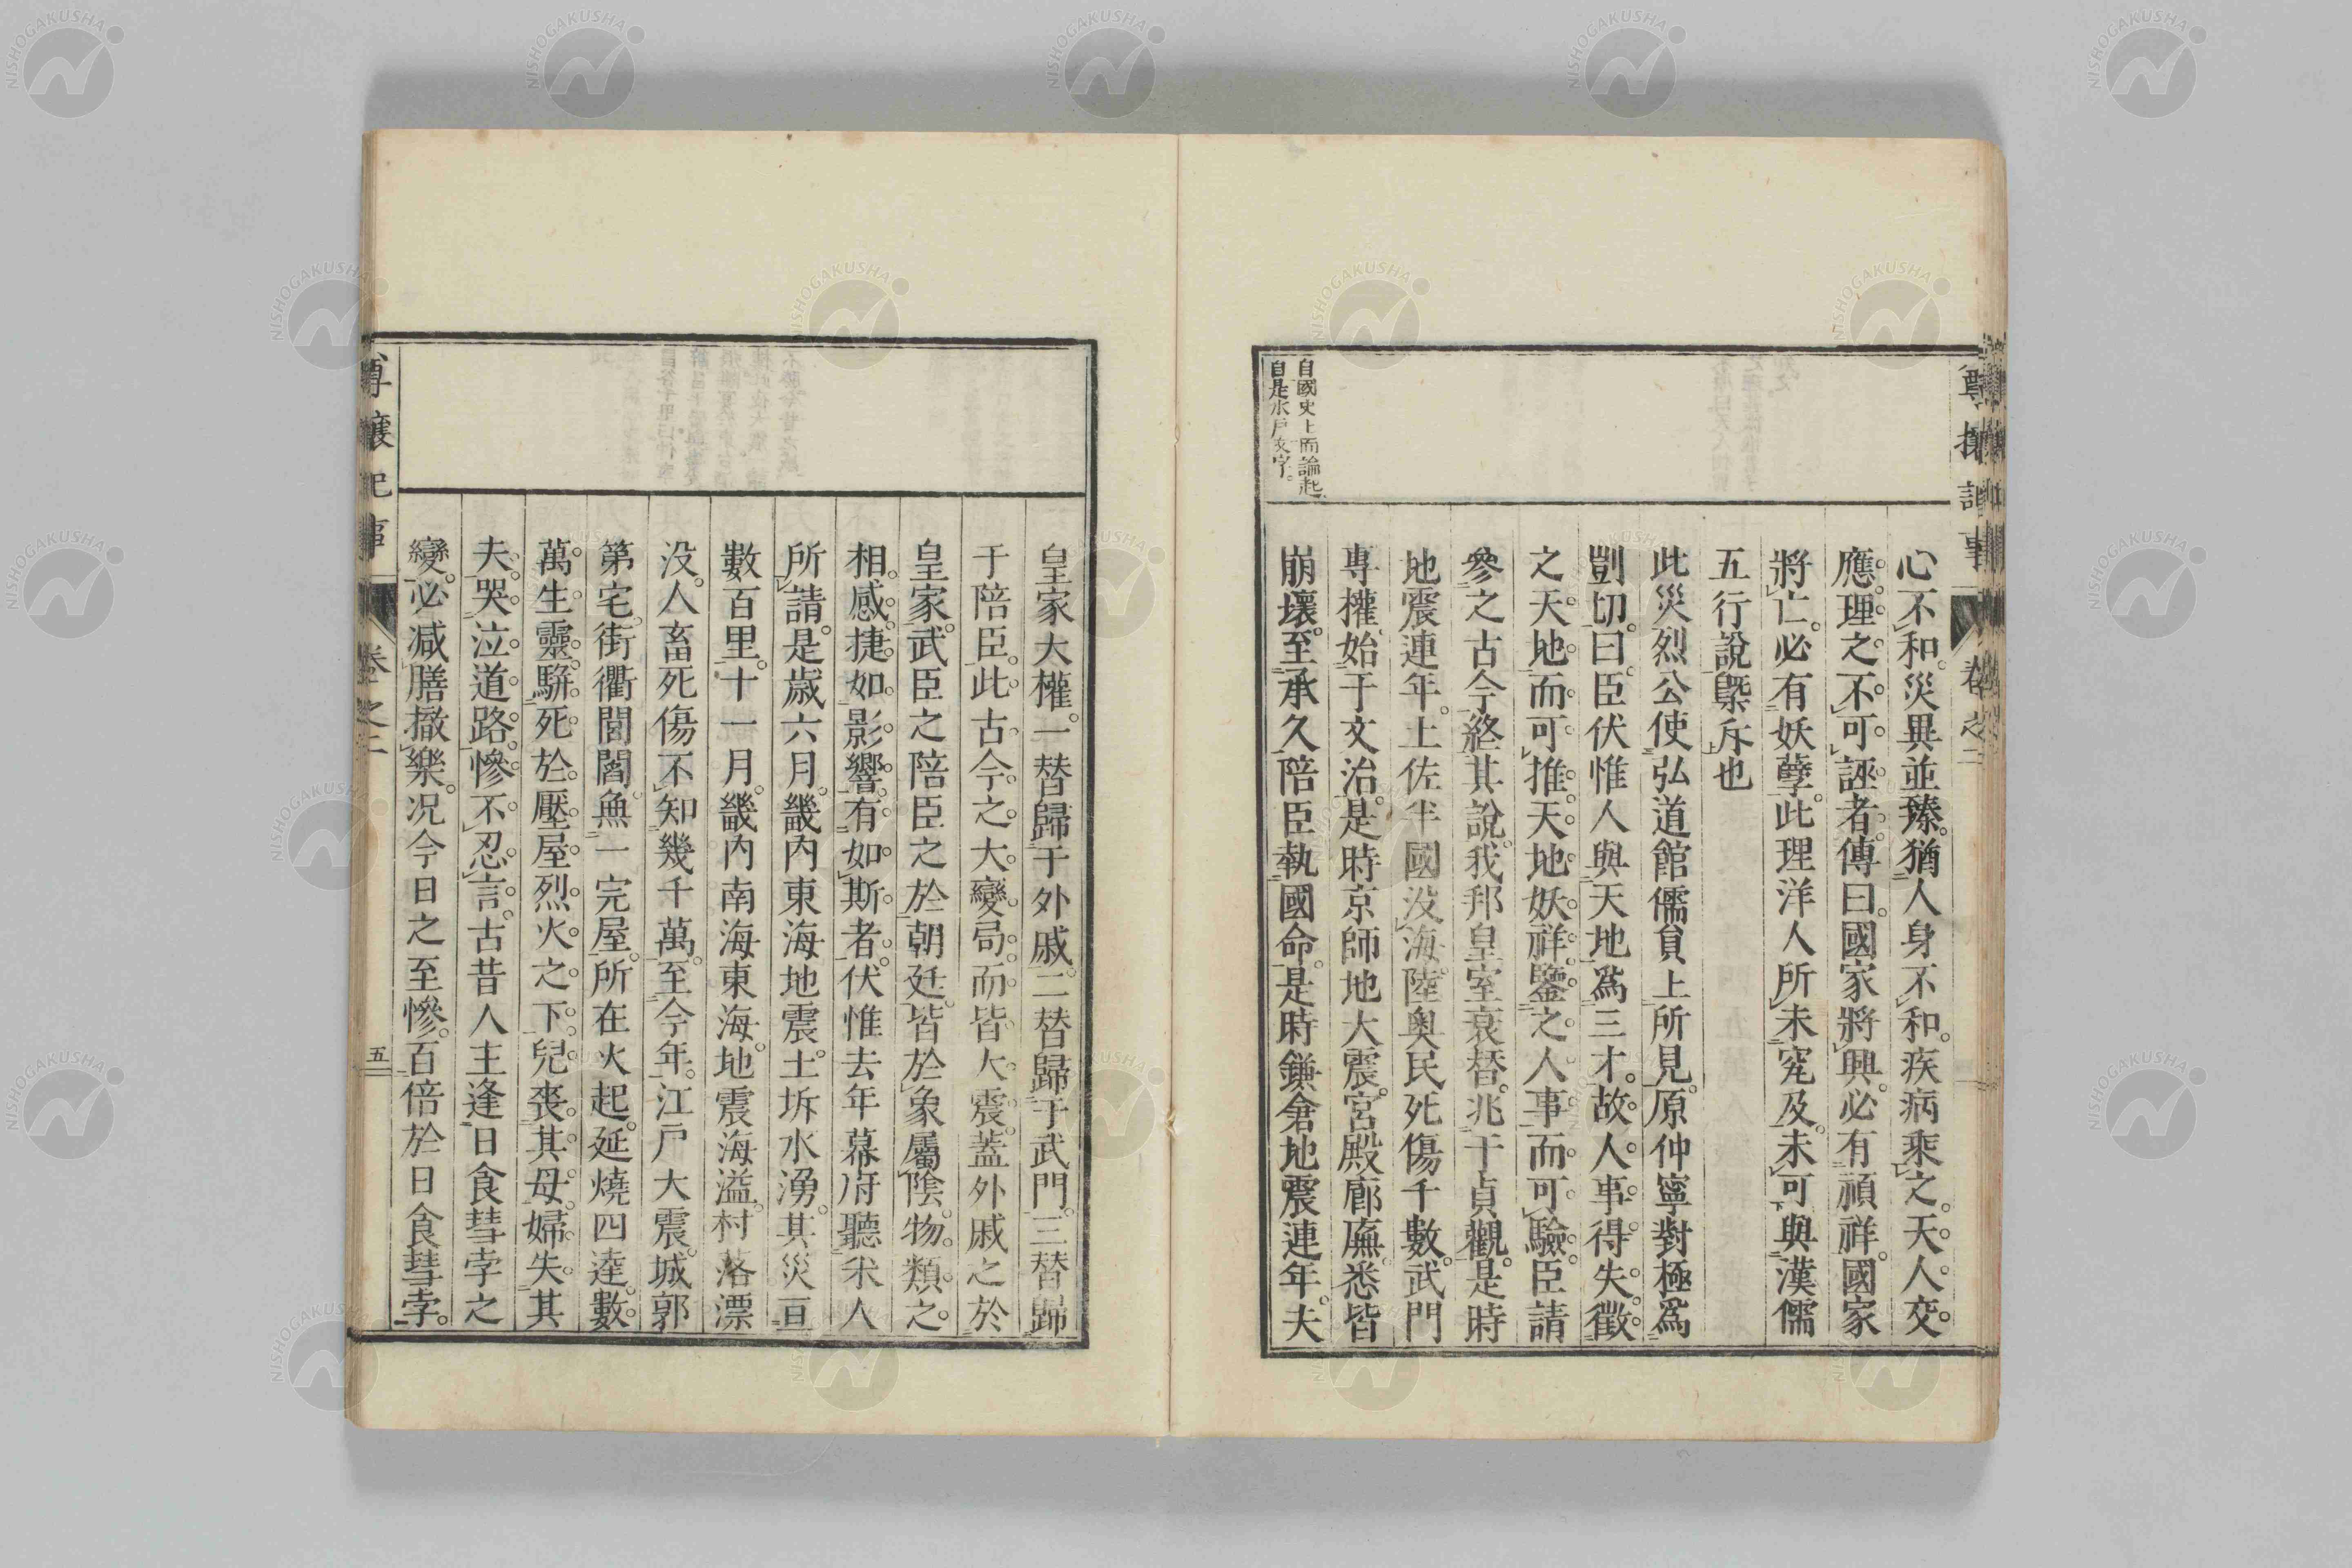 尊攘記事
卷之二
心不和。災異並臻。猶人身不和。疾病乘之。天人交
應。理之不可誣者。傳曰。國家將興。必有禎祥。國家
將亡。必有妖孽。此理洋人所未究及。未可與漢儒
五行說槩斥也
此災烈公使弘道館儒員上所見。原仲寧對極爲
剴切。曰。臣伏惟人與天地爲三才。故人事得失。徵
之天地而可推。天地妖祥。鑒之人事而可驗。臣請
參之古今。終其說。我邦皇室衰替。兆于貞觀。是時
地震連年。土佐半國沒海。陸奧民死傷千數。武門
專權。始于文治。是時京師地大震。宮殿廊廡。悉皆
崩壞。至承久陪臣執國命。是時鎌倉地震連年。夫
自國史上而論起
自是水戶文字。
皇家大權。一替歸于外戚。二替歸于武門。三替歸
于陪臣。此古今之大變局。而皆大震。蓋外戚之於
皇家。武臣之陪臣之於朝廷。皆於象屬陰。物類之
相感。捷如影響。有如斯者。伏惟去年幕府聽米人
所請。是歲六月。畿內東海地震。土坼水湧。其災亘
數百里。十一月。畿內南海東海。地震海溢。村落漂
没。人畜死傷不知幾千萬。至今年。江戶大震。城郭
第宅。街衢閭閻。無一完屋。所在火起。延燒四達。數
萬生靈。駢死於壓屋烈火之下。兒喪其母。婦失其
夫。哭泣道路。慘不忍言。古昔人主逢日食彗孛之
變。必減膳撤樂。況今日之至慘。百倍於日食彗孛。
尊攘記事
卷之二
五
NISHOGAKUSHA
NISHOGAKUSHA
NISHOGAKUSHA
NISHOGAKUSHA
NISHOGAKUSHA